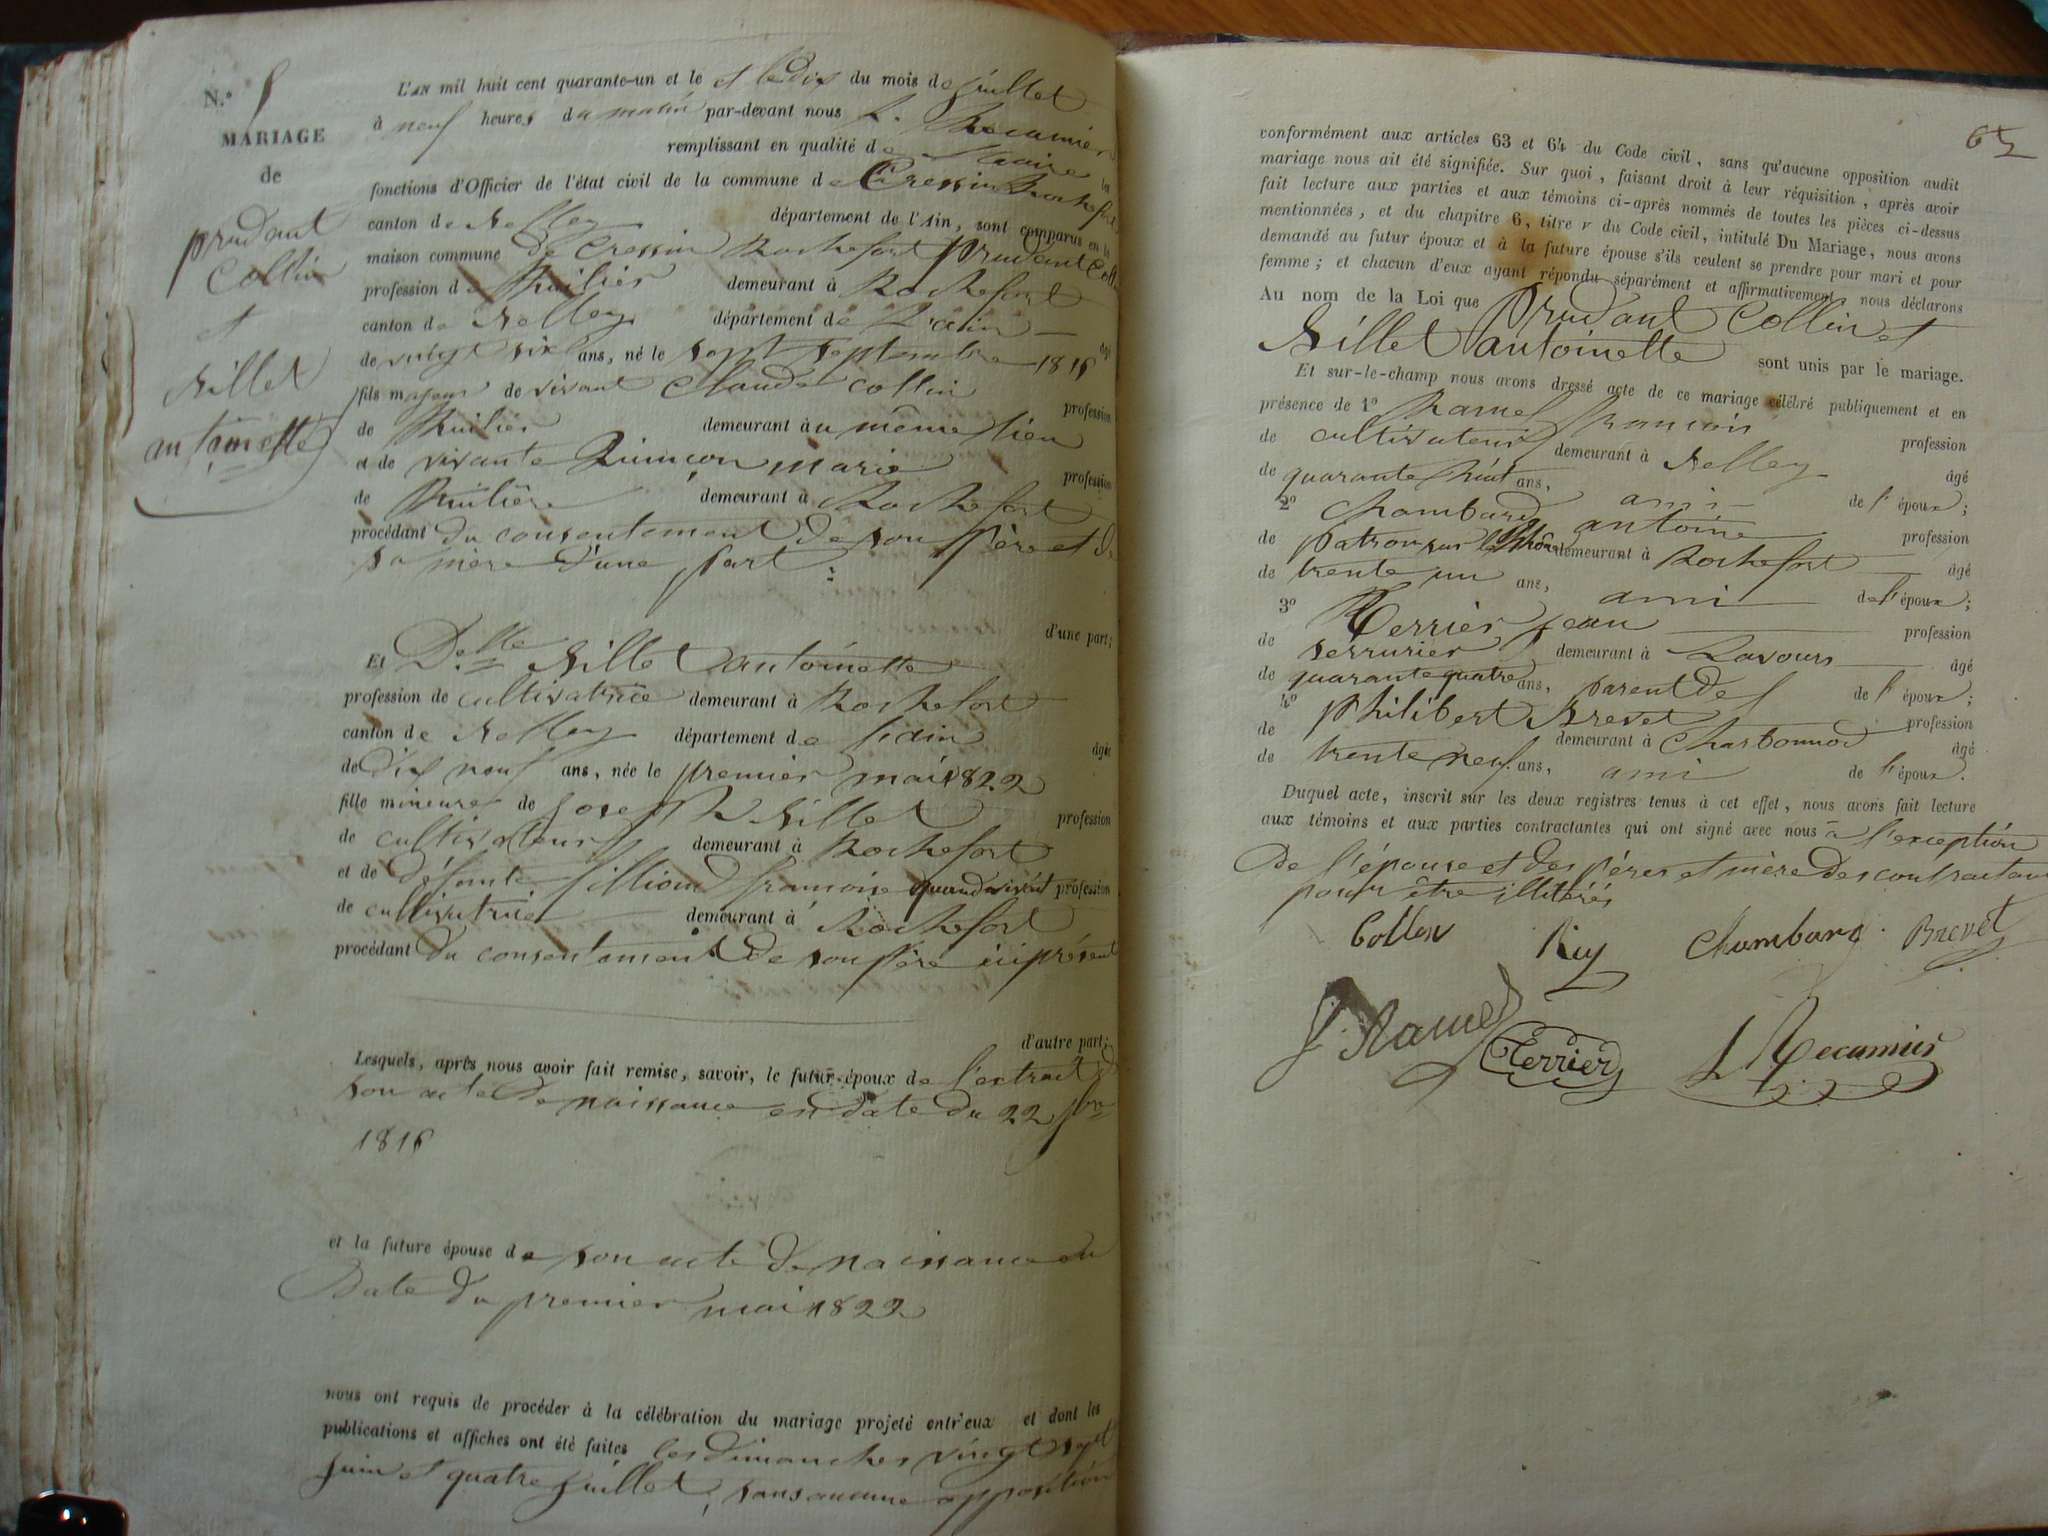 N.°
MARIAGE
de
prudant
Collin
et
Billet
antoinette
L'AN mil huit cent quarante-un et le et le dix du mois de juillet
à neuf heures du matin par-devant nous L. Récamier
remplissant en qualité de Maire les
fonctions d'Officier de l'état civil de la commune de Cressin Rochefort
canton de Belley département de l'Ain, sont comparus en la
maison commune de Cressin Rochefort prudant Coll.
profession de huilier demeurant à Rochefort
canton de Belley département de L'ain
âgé
de vingt six ans, né le sept septembre 1816
fils majeur de vivant Claude Collin
profession
de huilier demeurant au même lieu
et de vivante Quinçon marie
profession
de huilière demeurant à Rochefort
procédant du consentement de son père et de
sa mère d'une part
d'une part;
Et Delle Billet antoinette
profession de cultivatrice demeurant à Rochefort
canton de Belley département de l'ain
âgée
de dix neuf ans, née le premier mai 1822
fille mineure de Joseph Billet
profession
de cultivateur demeurant à Rochefort
et de défunte fillion francoise quand vivait profession
de cultivatrice demeurant à Rochefort
procédant du consentement de son père ici présent
d'autre part;
Lesquels, après nous avoir fait remise, savoir, le futur époux de l'extrait de
son acte de naissance en date du 22
1816
et la future épouse de son acte de naissance en
Date du premier mai 1822
nous ont requis de procéder à la célébration du mariage projeté entr'eux et dont les
publications et affiches ont été faites les dimanches vingt sept
juin et quatre juillet, sans aucune opposition
65
conformément aux articles 63 et 64 du Code civil, sans qu'aucune opposition audit
mariage nous ait été signifiée. Sur quoi, faisant droit à leur réquisition, après avoir
fait lecture aux parties et aux témoins ci-après nommés de toutes les pièces ci-dessus
mentionnées, et du chapitre 6, titre v du Code civil, intitulé Du Mariage, nous avons
demandé au futur époux et à la future épouse s'ils veulent se prendre pour mari et pour
femme; et chacun d'eux ayant répondu séparément et affirmativement nous déclarons
Au nom de la Loi que Prudant Collin et
Billet antoinette sont unis par le mariage.
Et sur-le-champ nous avons dressé acte de ce mariage célébré publiquement et en
présence de 1° Ramel francois
profession
de cultivateur demeurant à Belley
âgé
de quarante huit ans, ami de l'époux;
2° Chambard antoine
profession
de patron sur le Rhône demeurant à Rochefort
âgé
de trente un ans, ami de l'époux;
3° Terrier jean
profession
de serrurier demeurant à Lavours
âgé
de quarante quatre ans, parent de l de l'époux;
4° Philibert Brevet
profession
de demeurant à Charbonnod
âgé
de trente neuf ans, ami de l'époux.
Duquel acte, inscrit sur les deux registres tenus à cet effet, nous avons fait lecture
aux témoins et aux parties contractantes qui ont signé avec nous à l'exception
De l'épouse et des pères et mère des contractans
pour être illitérés
Collin Rey Chambard Brevet
J. Ramel Terrier L Récamier